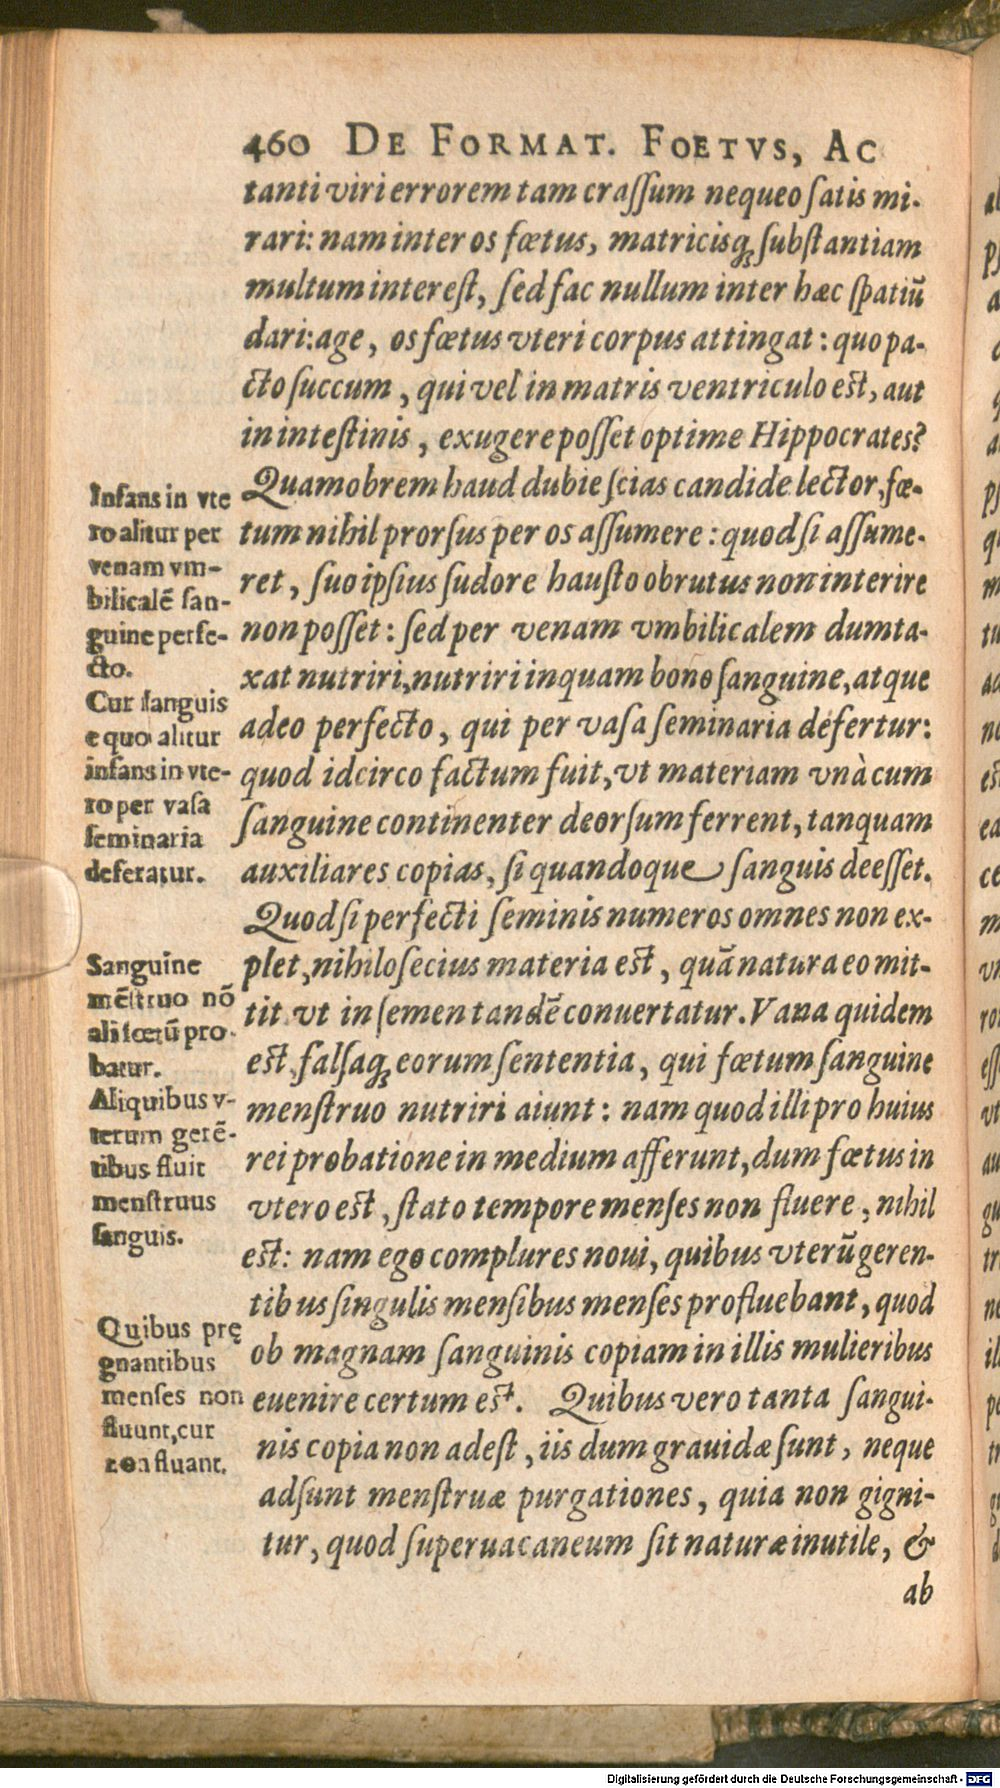 460 DE FORMAT. FOETVS, AC
tanti viri errorem tam craſſum nequeo ſatis mi-
rari: nam inter os fœtus, matricisq́ꝫ ſubſtantiam
multum intereſt, ſed fac nullum inter hæc ſpatiũ
dari: age, os fœtus vteri corpus attingat: quo pa-
cto ſuccum, qui vel in matris ventriculo eſt, aut
in inteſtinis, exugere poſſet optime Hippocrates?
Quamobrem haud dubie ſcias candide lector, fœ-
tum nihil prorſus per os aſſumere: quod ſi aſſume-
ret, ſuo ipſius ſudore hauſto obrutus non interire
non poſſet: ſed per venam vmbilicalem dumta-
xat nutriri, nutriri inquam bono ſanguine, atque
adeo perfecto, qui per vaſa ſeminaria defertur:
quod idcirco factum fuit, vt materiam vnà cum
ſanguine continenter deorſum ferrent, tanquam
auxiliares copias, ſi quandoque ſanguis deeſſet.
Quod ſi perfecti ſeminis numeros omnes non ex-
plet, nihilo ſecius materia eſt, quã natura eo mit-
tit vt in ſemen tandẽ conuertatur. Vana quidem
eſt, falſaq́ꝫ eorum ſententia, qui fœtum ſanguine
menſtruo nutriri aiunt: nam quod illi pro huius
rei probatione in medium afferunt, dum fœtus in
vtero eſt, ſtato tempore menſes non fluere, nihil
eſt: nam ego complures noui, quibus vterũ geren-
tibus ſingulis menſibus menſes profluebant, quod
ob magnam ſanguinis copiam in illis mulieribus
euenire certum eſt. Quibus vero tanta ſangui-
nis copia non adeſt, iis dum grauidæ ſunt, neque
adſunt menſtruæ purgationes, quia non gigni-
tur, quod ſuperuacaneum ſit naturæ inutile, &
ab
Infans in vte
ro alitur per
venam vm-
bilicalẽ ſan-
guine perfe-
cto.
Cur ſanguis
e quo alitur
infans in vte-
ro per vaſa
ſeminaria
deferatur.
Sanguine
mẽſtruo nõ
ali fœtũ pro-
batur.
Aliquibus v-
terum gerẽ-
tibus fluit
menſtruus
ſanguis.
Quibus prę
gnantibus
menſes non
fluunt, cur
non fluant.
Digitalisierung gefördert durch die Deutsche Forschungsgemeinschaft - DFG